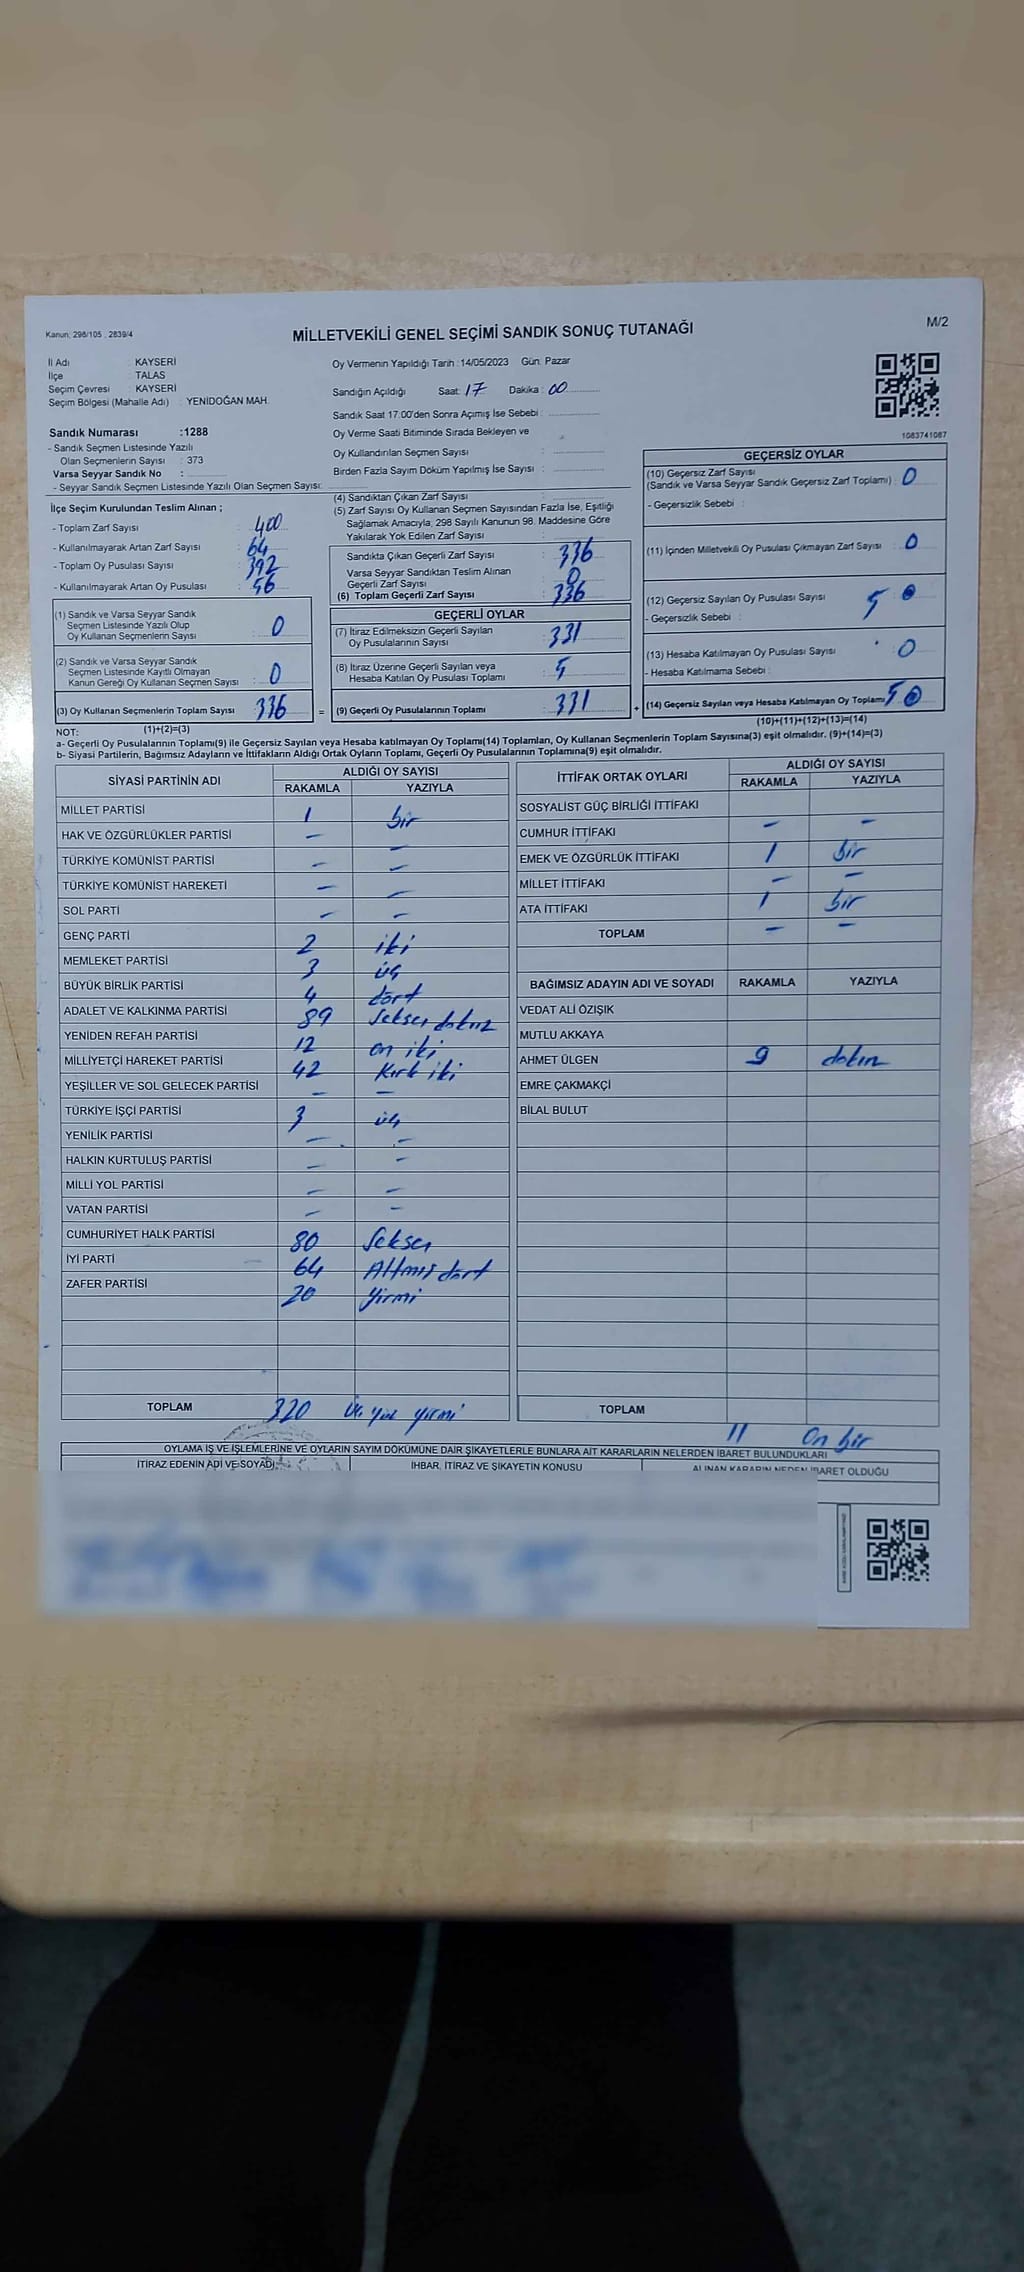 Kanun: 298/105 . 2839/4
MİLLETVEKİLİ GENEL SEÇİMİ SANDIK SONUÇ TUTANAĞI
M/2
İl Adı : KAYSERİ
İlçe : TALAS
Seçim Çevresi : KAYSERİ
Seçim Bölgesi (Mahalle Adı) : YENİDOĞAN MAH.
Sandık Numarası :1288
- Sandık Seçmen Listesinde Yazılı
Olan Seçmenlerin Sayısı : 373
Varsa Seyyar Sandık No :
- Seyyar Sandık Seçmen Listesinde Yazılı Olan Seçmen Sayısı:
Oy Vermenin Yapıldığı Tarih :14/05/2023 Gün: Pazar
Sandığın Açıldığı Saat: 17 Dakika : 00
Sandık Saat 17:00'den Sonra Açımış İse Sebebi :
Oy Verme Saati Bitiminde Sırada Bekleyen ve
Oy Kullandırılan Seçmen Sayısı :
Birden Fazla Sayım Döküm Yapılmış İse Sayısı :
1083741087
İlçe Seçim Kurulundan Teslim Alınan ;
- Toplam Zarf Sayısı : 400
- Kullanılmayarak Artan Zarf Sayısı : 64
- Toplam Oy Pusulası Sayısı : 392
- Kullanılmayarak Artan Oy Pusulası : 56
(1) Sandık ve Varsa Seyyar Sandık
Seçmen Listesinde Yazılı Olup
Oy Kullanan Seçmenlerin Sayısı : 0
(2) Sandık ve Varsa Seyyar Sandık
Seçmen Listesinde Kayıtlı Olmayan
Kanun Gereği Oy Kullanan Seçmen Sayısı : 0
(3) Oy Kullanan Seçmenlerin Toplam Sayısı : 336 =
(1)+(2)=(3)
(4) Sandıktan Çıkan Zarf Sayısı :
(5) Zarf Sayısı Oy Kullanan Seçmen Sayısından Fazla İse, Eşitliği
Sağlamak Amacıyla, 298 Sayılı Kanunun 98. Maddesine Göre
Yakılarak Yok Edilen Zarf Sayısı :
Sandıkta Çıkan Geçerli Zarf Sayısı : 336
Varsa Seyyar Sandıktan Teslim Alınan
Geçerli Zarf Sayısı : 0
(6) Toplam Geçerli Zarf Sayısı : 336
GEÇERLİ OYLAR
(7) İtiraz Edilmeksizin Geçerli Sayılan
Oy Pusulalarının Sayısı : 331
(8) İtiraz Üzerine Geçerli Sayılan veya
Hesaba Katılan Oy Pusulası Toplamı : 5
(9) Geçerli Oy Pusulalarının Toplamı : 331 +
GEÇERSİZ OYLAR
(10) Geçersiz Zarf Sayısı
(Sandık ve Varsa Seyyar Sandık Geçersiz Zarf Toplamı) : 0
- Geçersizlik Sebebi :
(11) İçinden Milletvekili Oy Pusulası Çıkmayan Zarf Sayısı : 0
(12) Geçersiz Sayılan Oy Pusulası Sayısı : 5
- Geçersizlik Sebebi :
(13) Hesaba Katılmayan Oy Pusulası Sayısı : 0
- Hesaba Katılmama Sebebi :
(14) Geçersiz Sayılan veya Hesaba Katılmayan Oy Toplamı 5
(10)+(11)+(12)+(13)=(14)
NOT:
a- Geçerli Oy Pusulalarının Toplamı(9) ile Geçersiz Sayılan veya Hesaba katılmayan Oy Toplamı(14) Toplamları, Oy Kullanan Seçmenlerin Toplam Sayısına(3) eşit olmalıdır. (9)+(14)=(3)
b- Siyasi Partilerin, Bağımsız Adayların ve İttifakların Aldığı Ortak Oyların Toplamı, Geçerli Oy Pusulalarının Toplamına(9) eşit olmalıdır.
SİYASİ PARTİNİN ADI ALDIĞI OY SAYISI
RAKAMLA YAZIYLA
MİLLET PARTİSİ 1 bir
HAK VE ÖZGÜRLÜKLER PARTİSİ – –
TÜRKİYE KOMÜNİST PARTİSİ – –
TÜRKİYE KOMÜNİST HAREKETİ – –
SOL PARTİ – –
GENÇ PARTİ 2 iki
MEMLEKET PARTİSİ 3 üç
BÜYÜK BİRLİK PARTİSİ 4 dört
ADALET VE KALKINMA PARTİSİ 89 Seksen dokuz
YENİDEN REFAH PARTİSİ 12 on iki
MİLLİYETÇİ HAREKET PARTİSİ 42 Kırk iki
YEŞİLLER VE SOL GELECEK PARTİSİ – –
TÜRKİYE İŞÇİ PARTİSİ 3 üç
YENİLİK PARTİSİ – –
HALKIN KURTULUŞ PARTİSİ – –
MİLLİ YOL PARTİSİ – –
VATAN PARTİSİ – –
CUMHURİYET HALK PARTİSİ 80 Seksen
İYİ PARTİ 64 Altmış dört
ZAFER PARTİSİ 20 Yirmi
TOPLAM 320 Üç yüz yirmi
İTTİFAK ORTAK OYLARI ALDIĞI OY SAYISI
RAKAMLA YAZIYLA
SOSYALİST GÜÇ BİRLİĞİ İTTİFAKI
CUMHUR İTTİFAKI – –
EMEK VE ÖZGÜRLÜK İTTİFAKI 1 bir
MİLLET İTTİFAKI – –
ATA İTTİFAKI 1 bir
TOPLAM – –
BAĞIMSIZ ADAYIN ADI VE SOYADI RAKAMLA YAZIYLA
VEDAT ALİ ÖZIŞIK
MUTLU AKKAYA
AHMET ÜLGEN 9 dokuz
EMRE ÇAKMAKÇİ
BİLAL BULUT
TOPLAM
11 On bir
OYLAMA İŞ VE İŞLEMLERİNE VE OYLARIN SAYIM DÖKÜMÜNE DAİR ŞİKAYETLERLE BUNLARA AİT KARARLARIN NELERDEN İBARET BULUNDUKLARI
İTİRAZ EDENİN ADI VE SOYADI
İHBAR, İTİRAZ VE ŞİKAYETİN KONUSU
ALINAN KARARIN NEDEN İBARET OLDUĞU